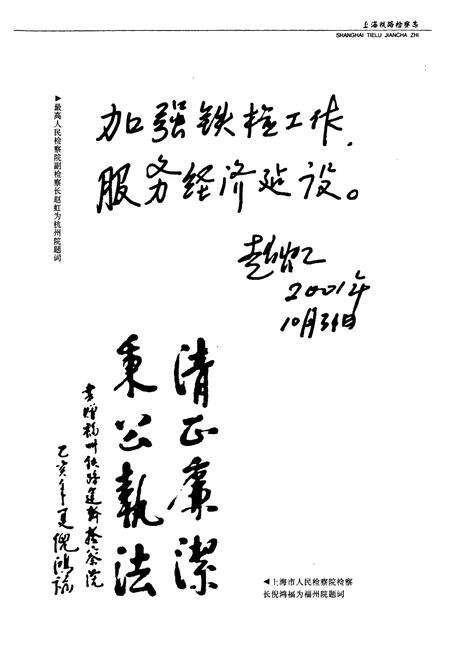 上海铁路检察志
SHANGHAI TIELU JIANCHA ZHI
▶最高人民检察院副检察长赵虹为杭州院题词
加强铁检工作，
服务经济建设。
赵虹
2001年
10月31日
清正廉潔
秉公執法
書贈福州铁路运输检察院
乙亥年夏倪鴻福
◀上海市人民检察院检察
长倪鸿福为福州院题词